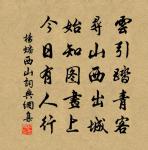 雲引踏青客
尋山西出城
始知圖畫上
今日有人行
楊蟠西山詞與網集